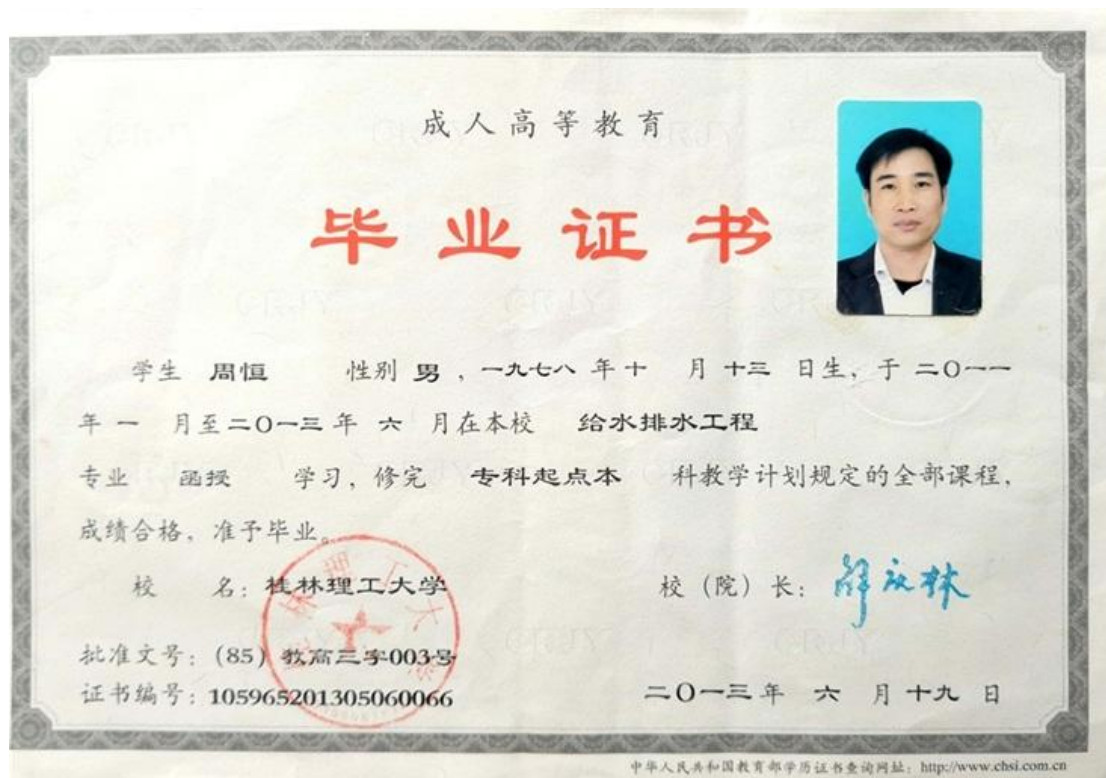 成人高等教育
毕业证书
学生 周恒 性别 男 , 一九七八 年 十 月 十三 日生, 于 二〇一一
年 一 月至 二〇一三 年 六 月在本校 给水排水工程
专业 函授 学习, 修完 专科起点本 科教学计划规定的全部课程,
成绩合格, 准予毕业。
校 名: 桂林理工大学
校 (院) 长:
批准文号: (85) 教高三字003号
证书编号: 105965201305060066
二〇一三 年 六 月 十九 日
中华人民共和国教育部学历证书查询网址: http://www.chsi.com.cn